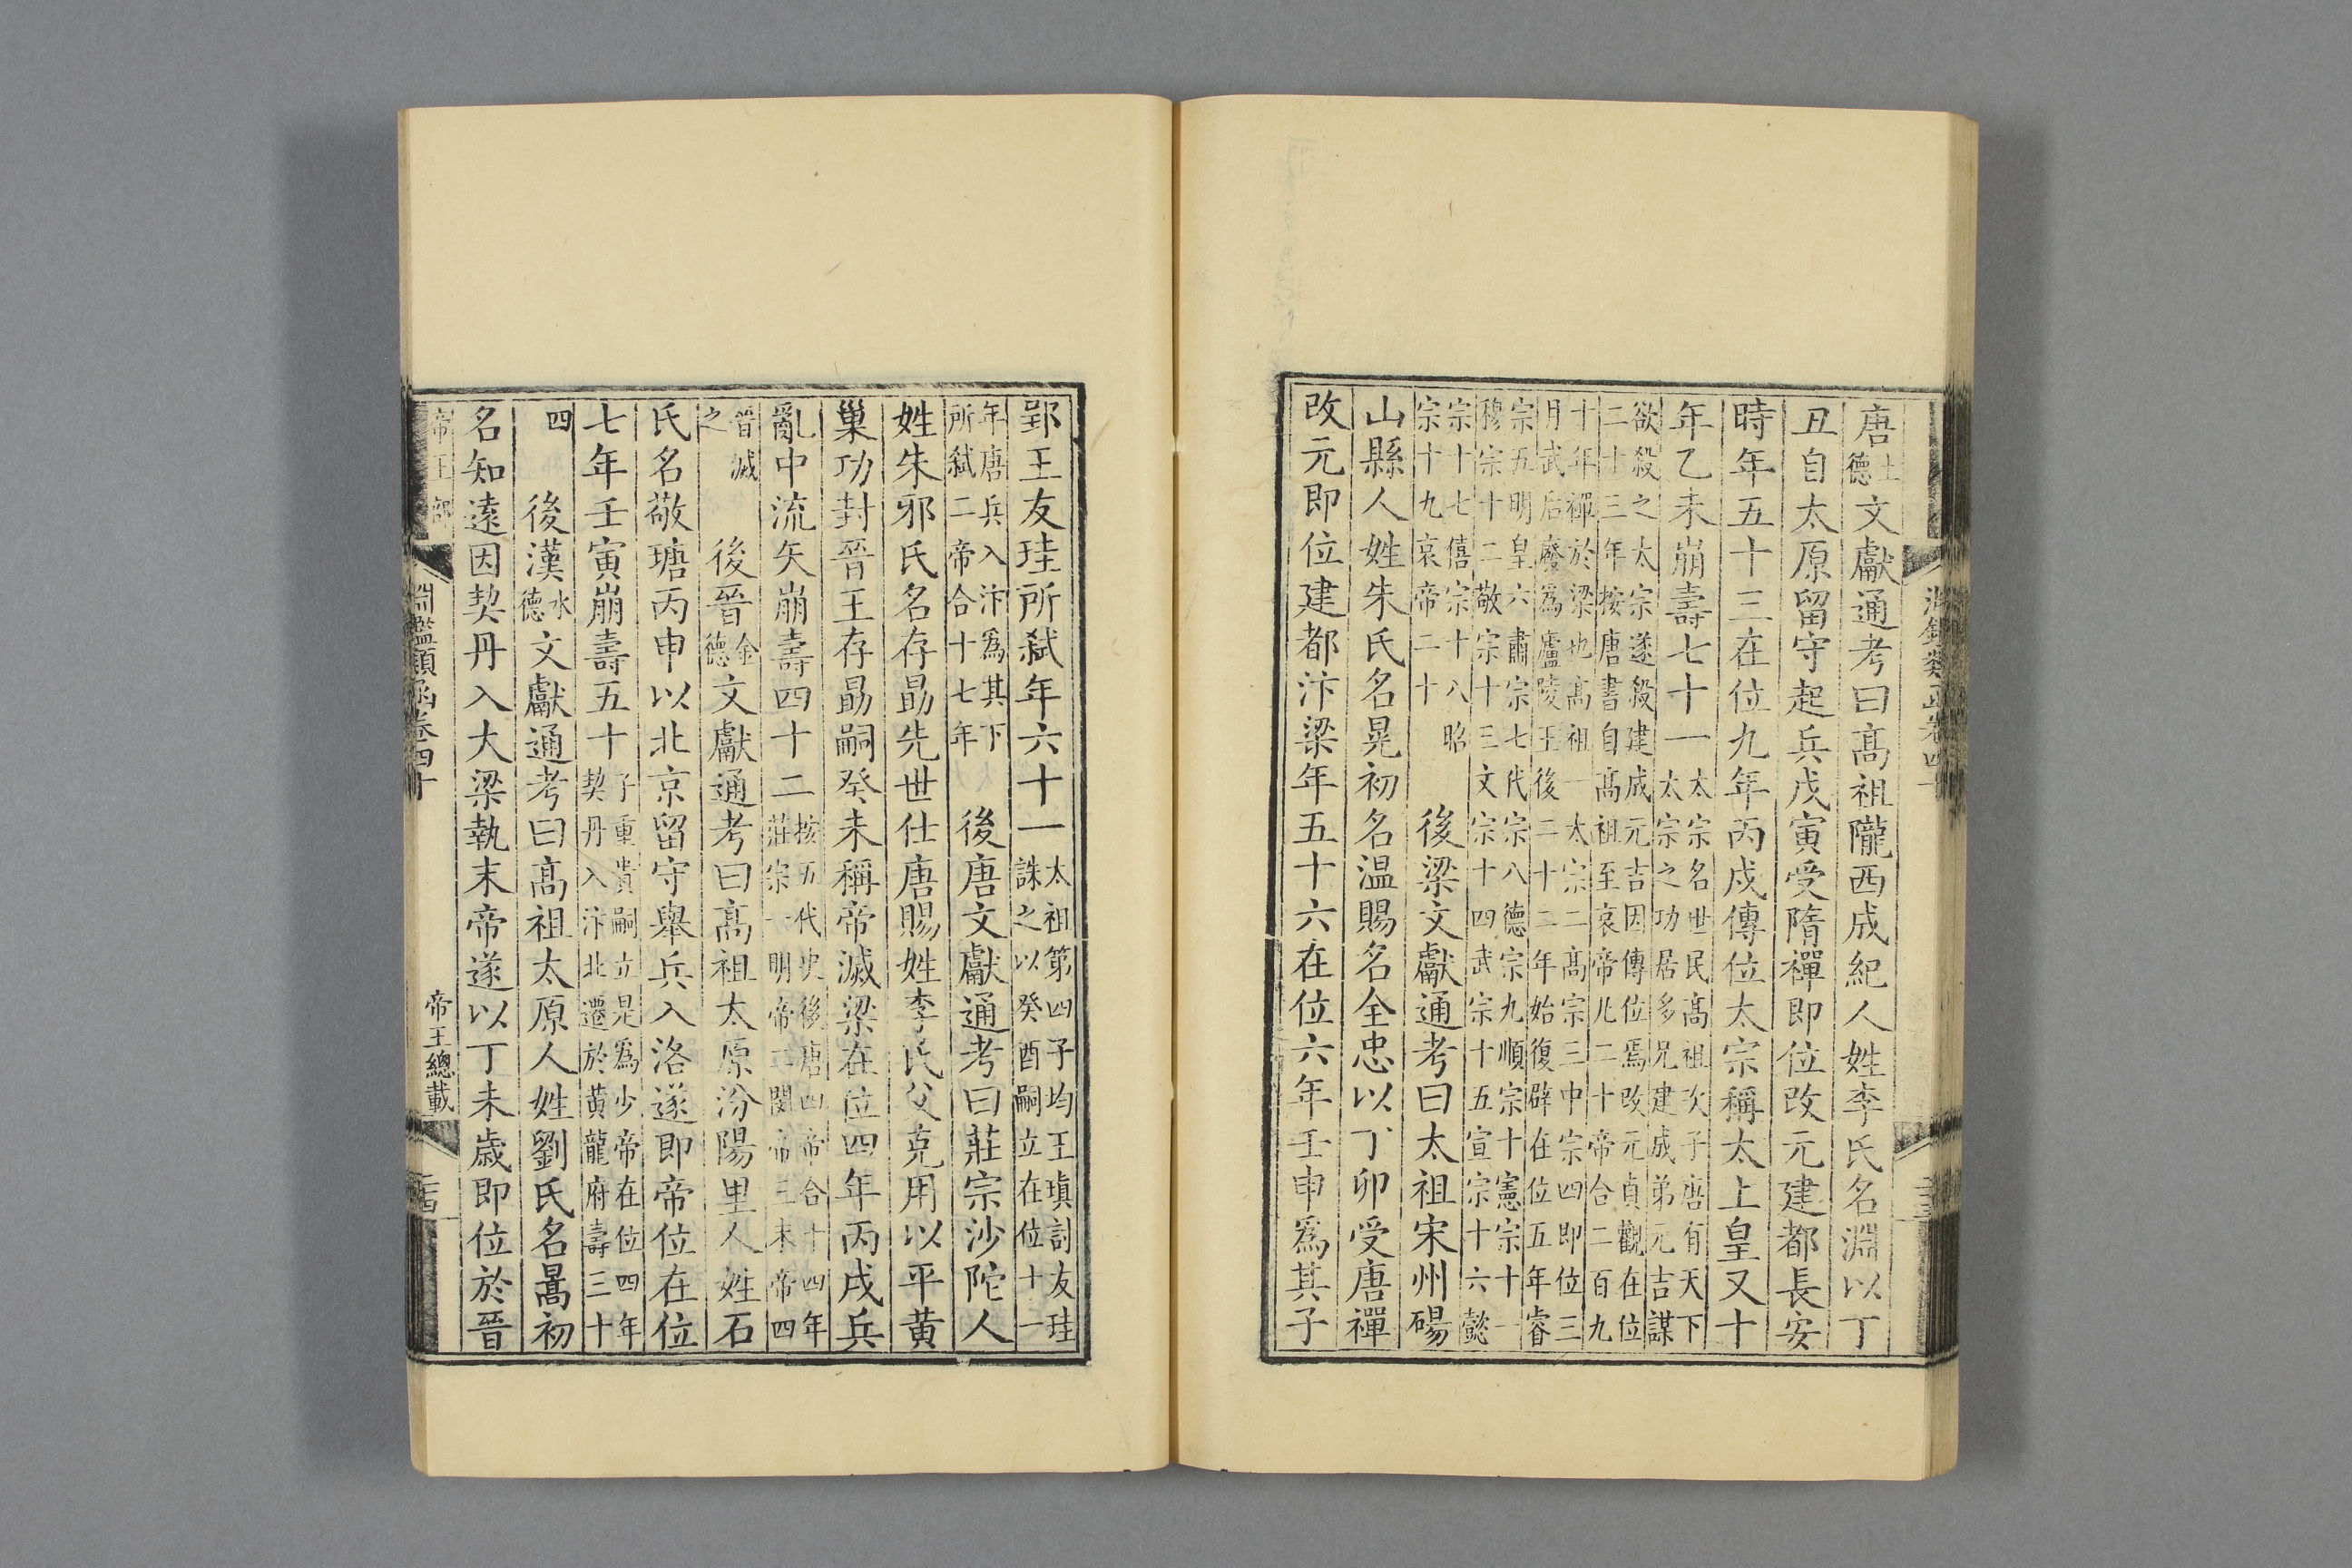 淵鑑類函卷四十
唐土德文獻通考曰髙祖隴西成紀人姓李氏名淵以丁
丑自太原留守起兵戊寅受隋禪即位改元建都長安
時年五十三在位九年丙戌傳位太宗稱太上皇又十
年乙未崩壽七十一太宗名世民髙祖次子唐有天下太宗之功居多兄建成弟元吉謀
欲殺之太宗遂殺建成元吉因傳位焉改元貞觀在位二十三年按唐書自髙祖至哀帝凡二十帝合二百九
十年禪於梁也髙祖一太宗二髙宗三中宗四即位三月武后廢爲廬陵王後二十二年始復辟在位五年睿
宗五明皇六肅宗七代宗八德宗九順宗十憲宗十一穆宗十二敬宗十三文宗十四武宗十五宣宗十六懿
宗十七僖宗十八昭宗十九哀帝二十　後梁文獻通考曰太祖宋州碭
山縣人姓朱氏名晃初名温賜名全忠以丁卯受唐禪
改元即位建都汴梁年五十六在位六年壬申爲其子
郢王友珪所弑年六十一太祖第四子均王瑱討友珪誅之以癸酉嗣立在位十一
年唐兵入汴爲其下所弑二帝合十七年　後唐文獻通考曰莊宗沙陀人
姓朱邪氏名存勗先世仕唐賜姓李氏父克用以平黄
巢功封晉王存勗嗣癸未稱帝滅梁在位四年丙戌兵
亂中流矢崩壽四十二按五代史後唐四帝合十四年莊宗一明帝二閔帝三末帝四
晉滅之　後晉金德文獻通考曰髙祖太原汾陽里人姓石
氏名敬瑭丙申以北京留守舉兵入洛遂即帝位在位
七年壬寅崩壽五十子重貴嗣立是爲少帝在位四年契丹入汴北遷於黄龍府壽三十
四　後漢水德文獻通考曰髙祖太原人姓劉氏名暠初
名知遠因契丹入大梁執末帝遂以丁未歲即位於晉
帝王部　淵鑑類函卷四十　帝王總載　二十四